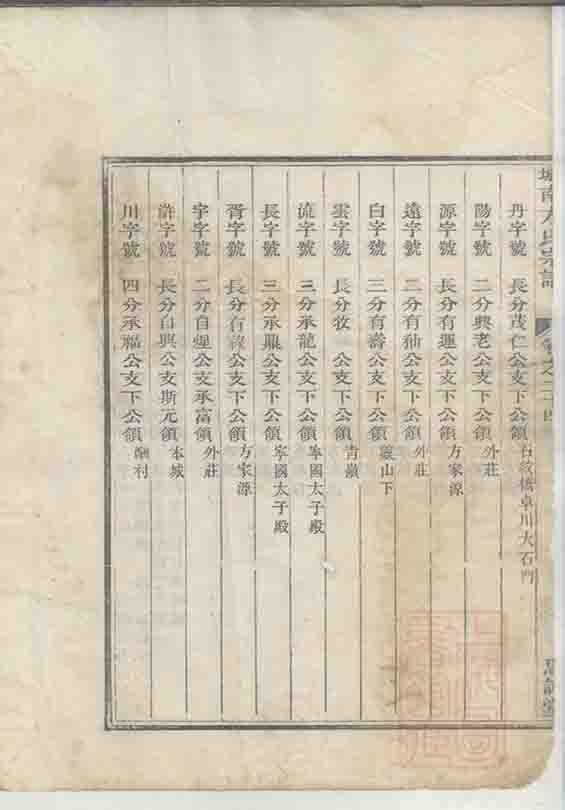 城南方氏宗譜 卷之二十四
丹字號 長分茂仁公支下公領 石紋橋阜川大石門
陽字號 二分興老公支下公領 外莊
源字號 長分有運公支下公領 方家源
遠字號 二分有仙公支下公領 外莊
白字號 三分有壽公支下公領 山下
雲字號 長分牧 公支下公領 青嶺
流字號 三分承龍公支下公領 寧國太子殿
長字號 三分承鳳公支下公領 寧國太子殿
胥字號 長分有祿公支下公領 方家源
宇字號 二分自煋公支承富領 外莊
滸字號 長分自興公支斯元領 本城
川字號 四分承福公支下公領 利